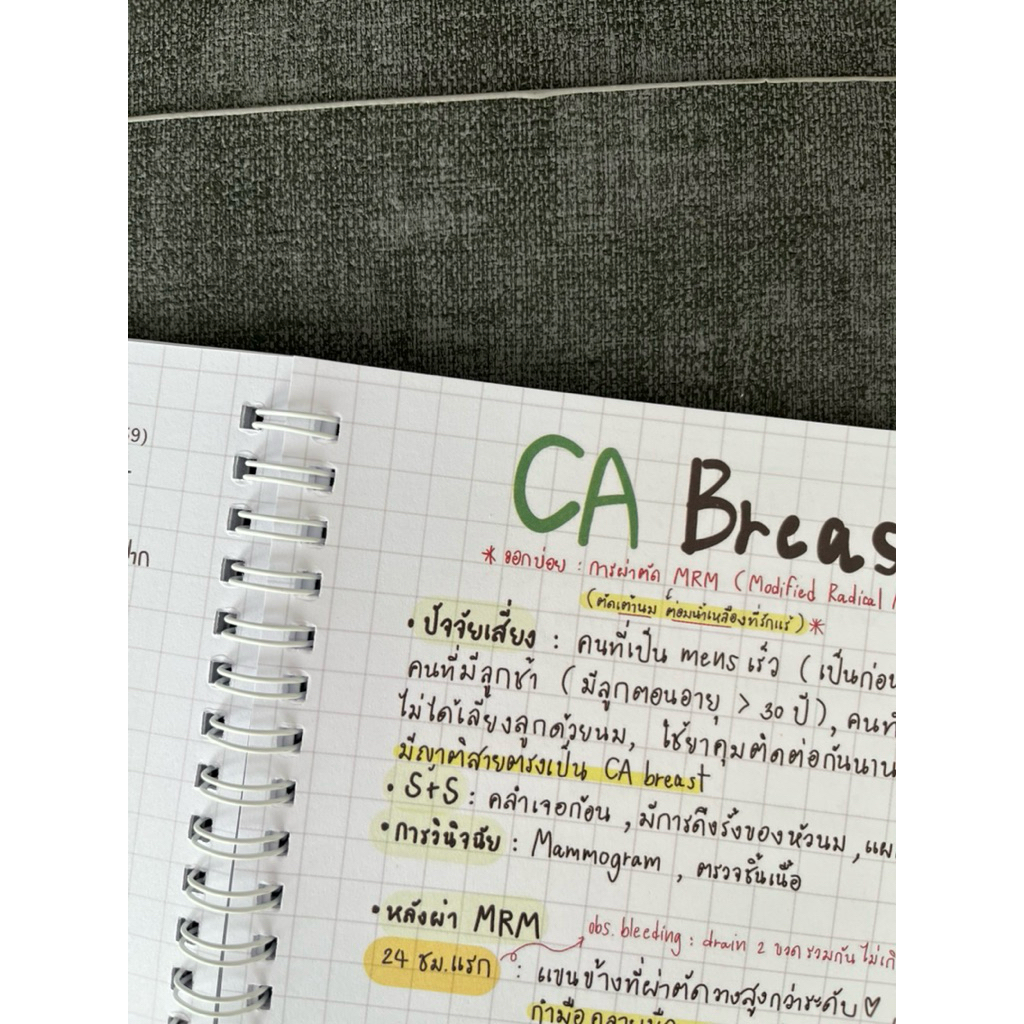 59)
CA Breas
* ออกบ่อย : การผ่าตัด MRM (Modified Radical
(ตัดเต้านม ต่อมน้ำเหลืองที่รักแร้)*
• ปัจจัยเสี่ยง : คนที่เป็น mens เร็ว (เป็นก่อน
คนที่มีลูกช้า (มีลูกตอนอายุ > 30 ปี), คนที่
ไม่ได้เลี้ยงลูกด้วยนม, ใช้ยาคุมติดต่อกันนาน
มีญาติสายตรงเป็น CA breast
• S+S : คลำเจอก้อน, มีการดึงรั้งของหัวนม, แผ
• การวินิจฉัย : Mammogram, ตรวจชิ้นเนื้อ
• หลังผ่า MRM
obs. bleeding : drain 2 ขวดรวมกัน ไม่เกิ
24 ชม.แรก : แขนข้างที่ผ่าตัดวางสูงกว่าระดับ♡
กำมือคลายมือ